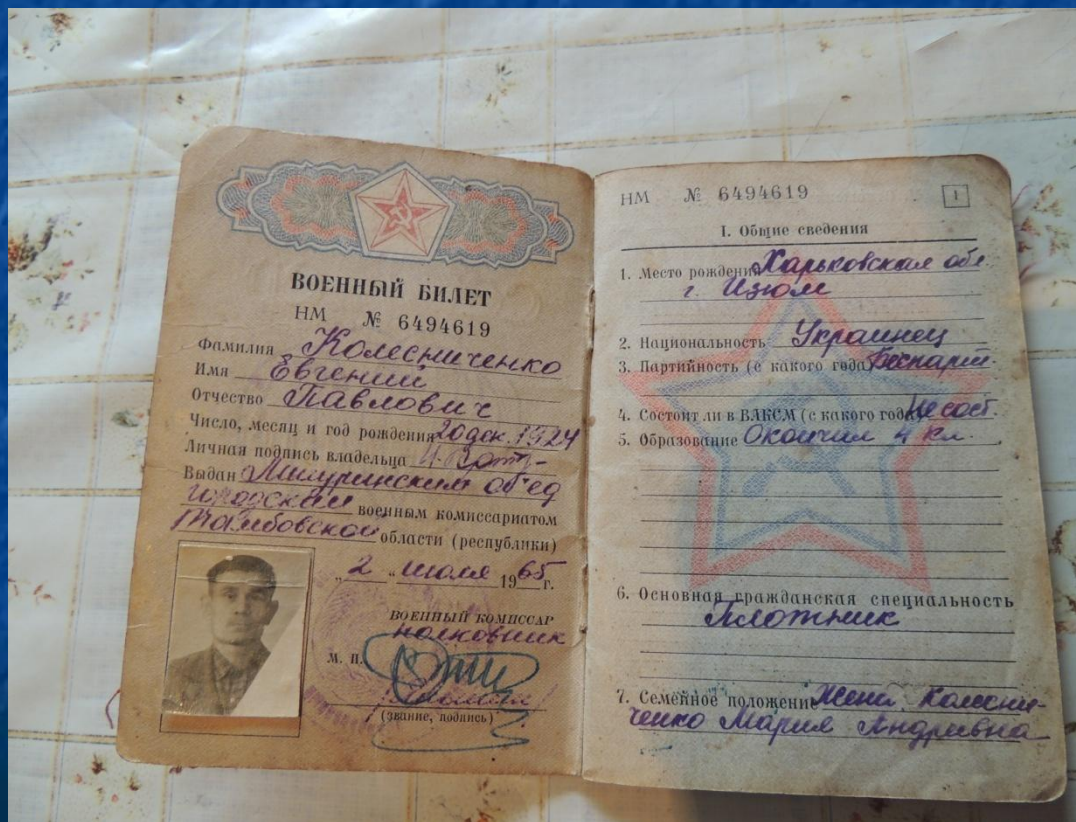 ВОЕННЫЙ БИЛЕТ
НМ № 6494619
Фамилия Колесниченко
Имя Евгений
Отчество Павлович
Число, месяц и год рождения 20 дек. 1924
Личная подпись владельца
Выдан Мичуринским об'ед
городским военным комиссариатом
Тамбовской области (республики)
„ 2 “ июля 1965 г.
ВОЕННЫЙ КОМИССАР
полковник
М. П.
(звание, подпись)
НМ № 6494619
1
I. Общие сведения
1. Место рождения Харьковская обл.
г. Изюм
2. Национальность Украинец
3. Партийность (с какого года) Беспартий.
4. Состоит ли в ВЛКСМ (с какого года) Не сост.
5. Образование Окончил 4 кл.
6. Основная гражданская специальность
Плотник
7. Семейное положение Жена Колесни-
ченко Мария Андревна